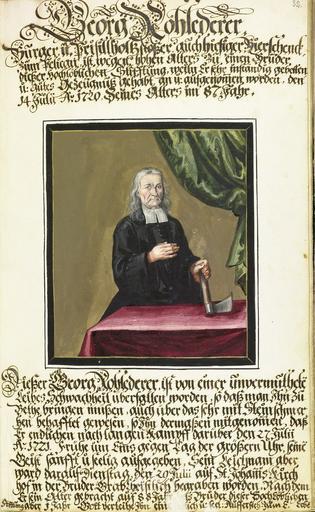 82.
Georg Rohlederer
Bürger u. Prifilholtzstoßer auch hiesiger Bierschenck
zum Pelican ist wegen hohen Alters zu einen Bruder
dießer hochlöblichen Stifftung, weiln Er sehr inständig gebetten
u. gutes Gezeugnuß gehabt, an u. aufgenomen worden, den
14. Julii A: 1720. Seines Alters im 87 Jahr.
Dießer Georg Rohlederer, ist von einer unvermuthete
Leibes Schwachheit überfallen worden, so daß man Ihn zu
Bethe bringen müßen, auch über das sehr mit Steinschmer
zen behafftet geweßen, so Ihn dermaßen mitgenomen, daß
Er endlichen nach langen Kampff darüber den 27 Julii
A: 1721. Frühe um Eins gegen Tag der größern Uhr, seine
Geist sanfft u. seelig aufgegeben. Sein Leichnam aber
ward darauf Dienstag, den 29 Julii auf St. Johannis Kirch
hof in der Brüder Grab, Christlich begraben worden. Nachdem
Er sein Alter gebracht auf 88 Jahr, Brüder dieser
aber 1 Jahr. Gott verleihe Ihm ein